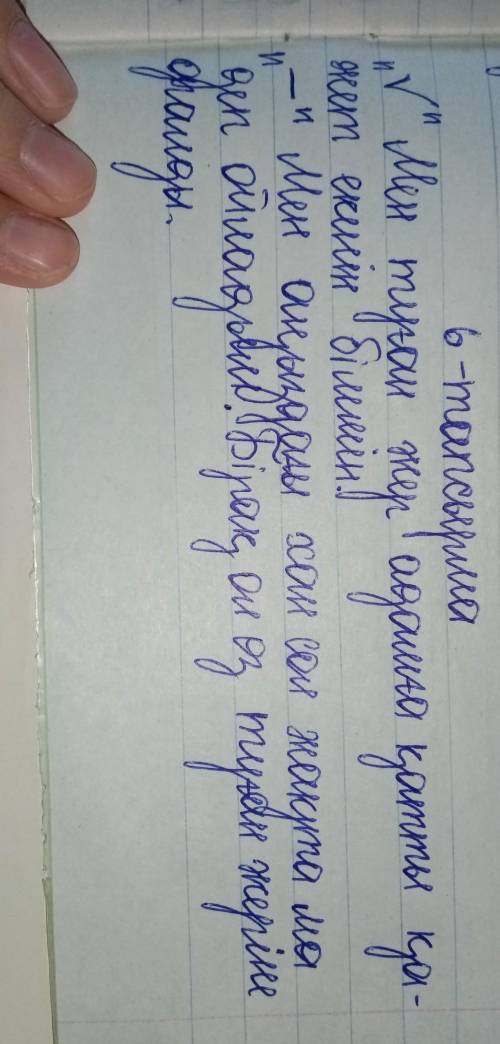 6-тапсырма
"√" Мен туған жер адамға қатты қа-
жет екенін білемін!
"–" Мен аңыздағы хан сол жақта ма
деп ойладым. Бірақ, ол өз туған жеріне
оралды.